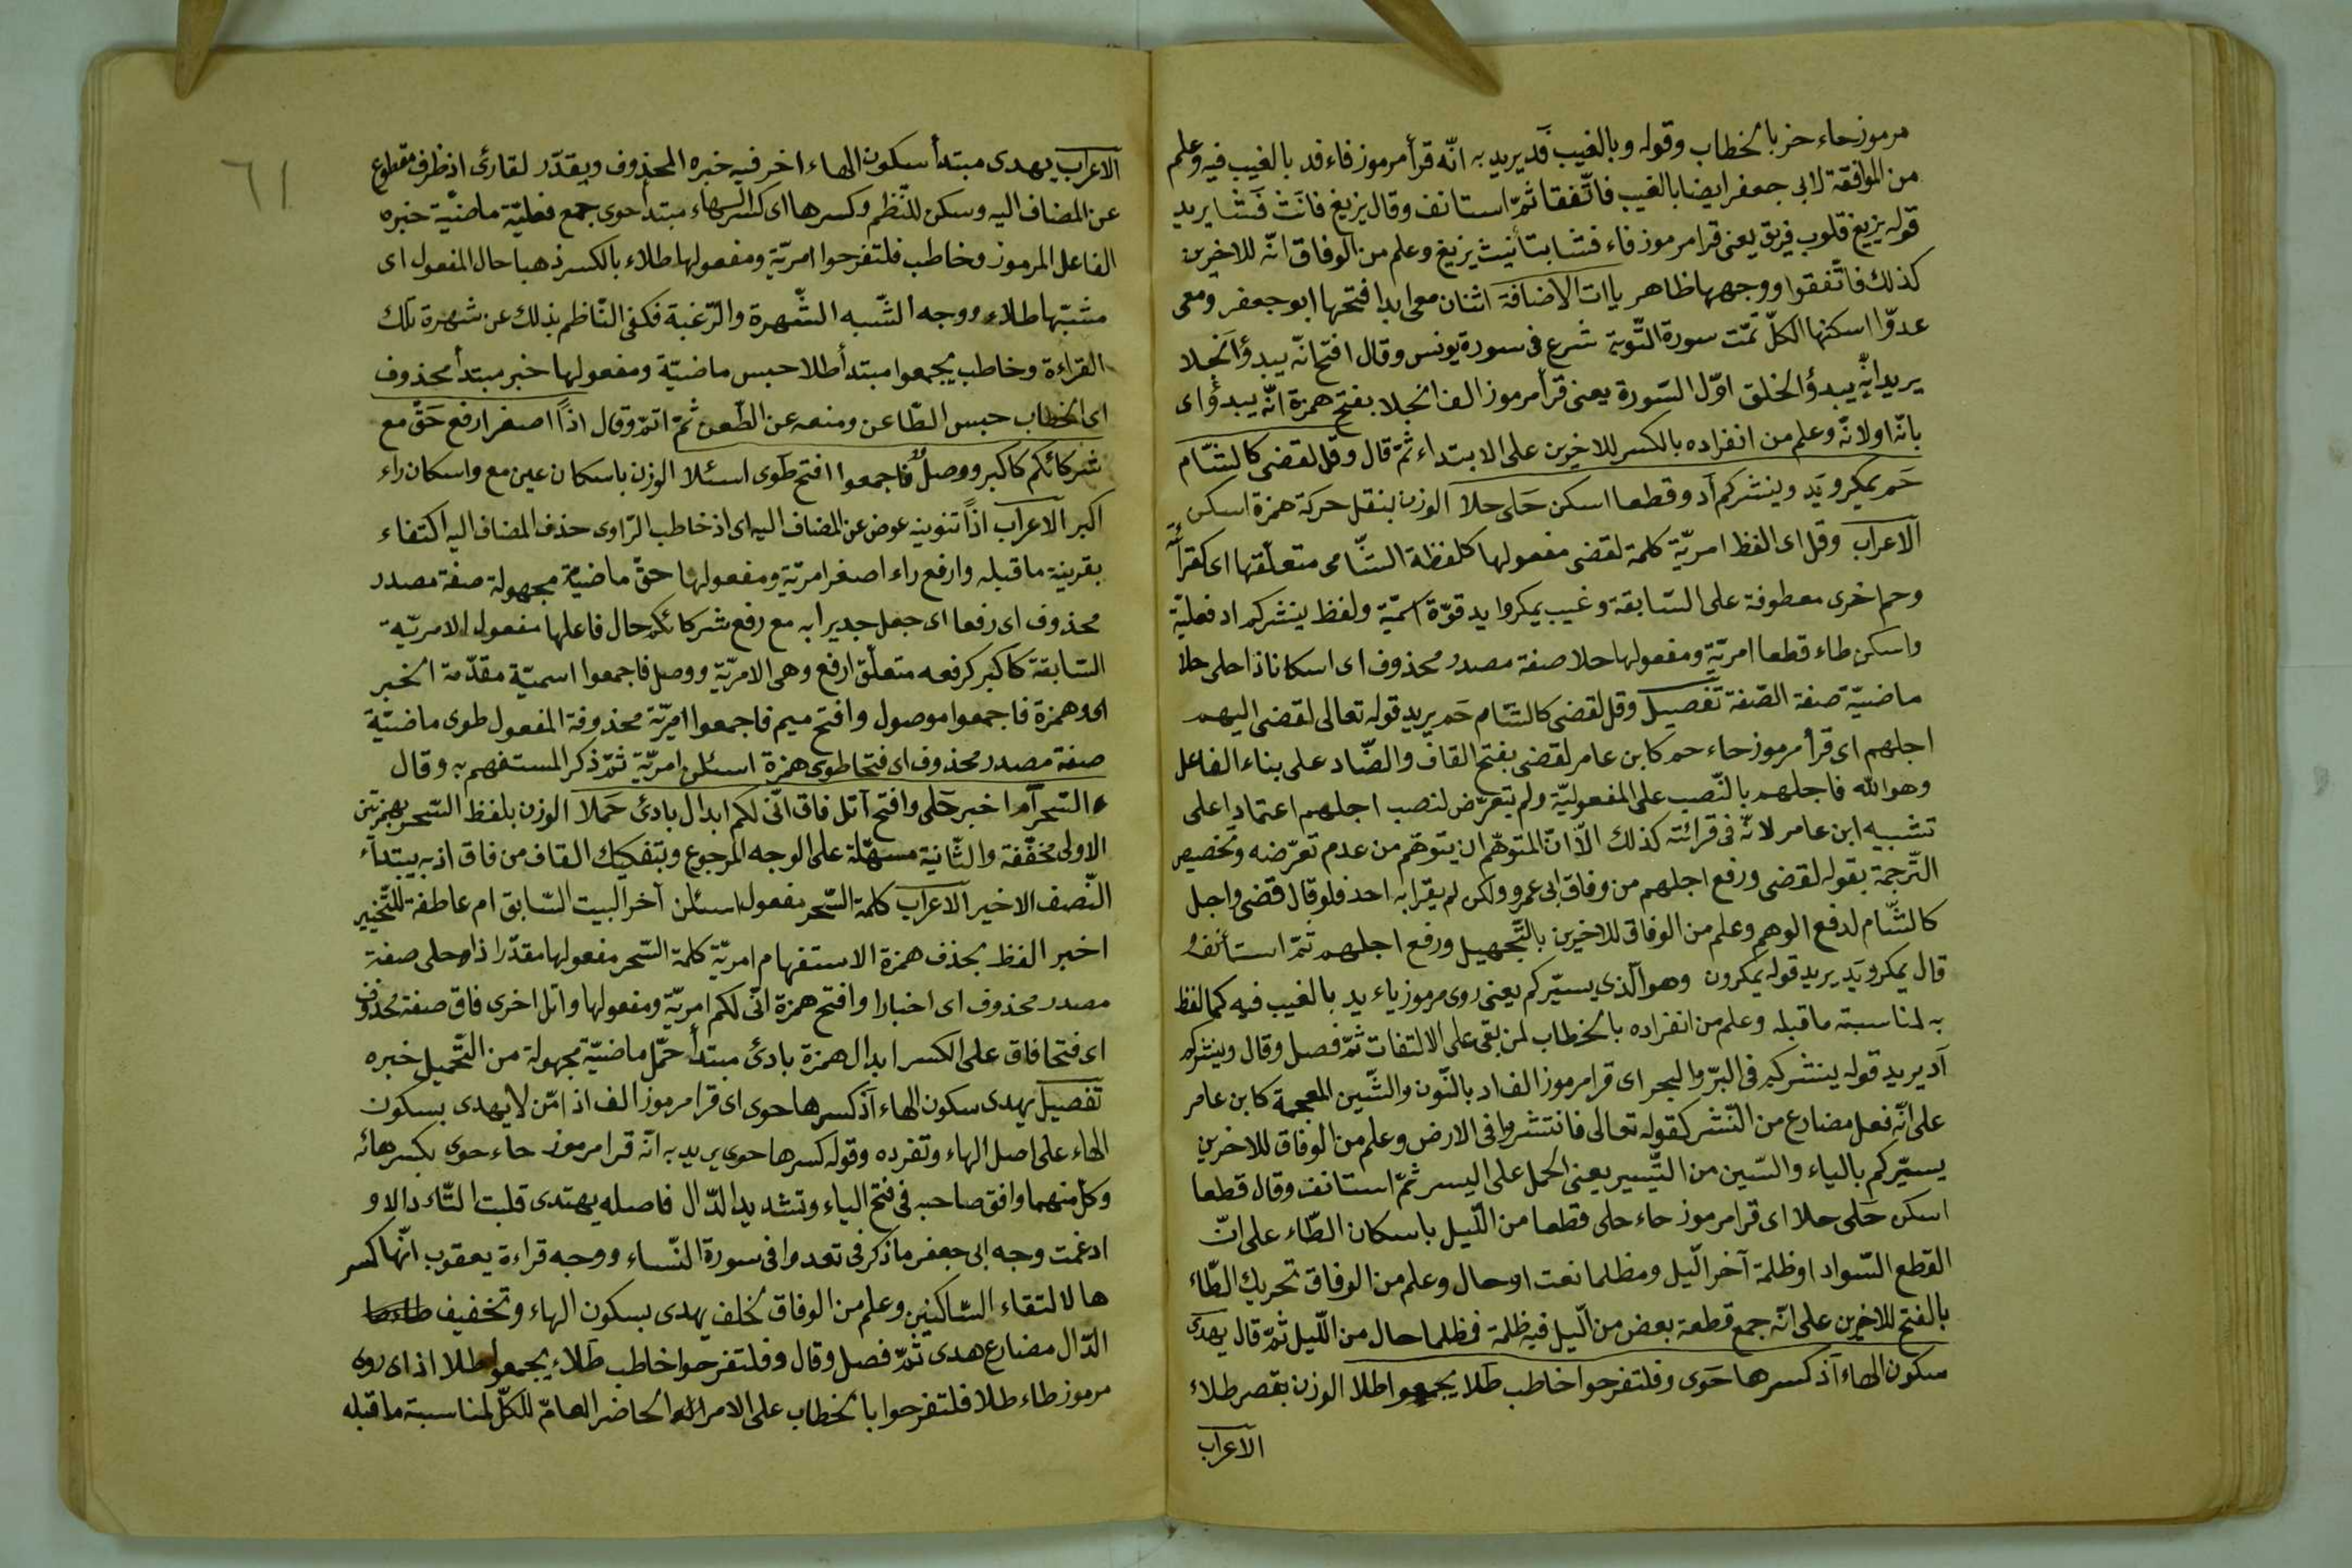 مرموز حاء حز بالخطاب وقوله وبالغيب فد يريد به انّه قرأ مرموز فاء فد بالغيب فيه وعلم
من الموافقة لابى جعفر ايضا بالغيب فاتّفقا ثمّ استانف وقال يزيغ فانث فشا يريد
قوله يزيغ قلوب فريق يعنى قرا مرموز فاء فشا بتأنيث يزيغ وعلم من الوفاق انّه للاخرين
كذلك فاتّفقوا ووجهها ظاهر ياات الاضافة اثنان معى ابدا فتحها ابو جعفر ومعى
عدوّا اسكنها الكلّ تمّت سورة التّوبة شرع فى سورة يونس وقال افتح انّه يبدؤ انجلا
يريد انّه يبدؤ الخلق اوّل السّورة يعنى قرأ مرموز الف انجلا بفتح همزة انّه يبدؤ اى
بانّه او لانّه وعلم من انفراده بالكسر للاخرين على الابتداء ثمّ قال وقل لقضى كالشّام
حم يمكرو يد وينشركم اد وقطعا اسكن حلى حلا الوزن بنقل حركة همزة اسكن
الاعراب وقل اى الفظ امريّة كلمة لقضى مفعولها كلفظة الشّامى متعلّقها اى كقرأته
وحم اخرى معطوفة على السّابقة وغيب يمكروا يد قوّة اسميّة ولفظ ينشركم اد فعليّة
واسكن طاء قطعا امريّة ومفعولها حلا صفة مصدر محذوف اى اسكانا ذا حلى حلا
ماضيّة صفة الصّفة تفصيل وقل لقضى كالشّام حم يريد قوله تعالى لقضى اليهم
اجلهم اى قرأ مرموز حاء حم كابن عامر لقضى بفتح القاف والضّاد على بناء الفاعل
وهو الله فاجلهم بالنّصب على المفعوليّة ولم يتعرّض لنصب اجلهم اعتمادا على
تشبيه ابن عامر لانّه فى قرائته كذلك الّا انّ المتوهّم ان يتوهّم من عدم تعرّضه وتخصيص
التّرجمة بقوله لقضى ورفع اجلهم من وفاق ابى عمرو ولكن لم يقرا به احد فلو قال قضى واجل
كالشّام لدفع الوهم وعلم من الوفاق للاخرين بالتّجهيل ورفع اجلهم ثمّ استأنف و
قال يمكرو يد يريد قوله يمكرون وهو الّذى يسيّركم يعنى روى مرموز ياء يد بالغيب فيه كما لفظ
به لمناسبة ما قبله وعلم من انفراده بالخطاب لمن بقى على الالتفات ثمّ فصل وقال وينشركم
اد يريد قوله ينشركم فى البرّ والبحر اى قرا مرموز الف اد بالنّون والشّين المعجمة كابن عامر
على انّه فعل مضارع من النّشر كقوله تعالى فانتشروا فى الارض وعلم من الوفاق للاخرين
يسيّركم بالياء والسّين من التّيسير يعنى الحمل على اليسر ثمّ استانف وقال قطعا
اسكن حلى حلا اى قرا مرموز حاء حلى قطعا من اللّيل باسكان الطّاء على انّ
القطع السّواد او ظلمة آخر الّيل ومظلما نعت او حال وعلم من الوفاق تحريك الطّاء
بالفتح للاخرين على انّه جمع قطعة بعض من الّيل فيه ظلمة فظلما حال من اللّيل ثمّ قال يهدى
سكون الهاء اذ كسرها حوى وفلتفرحوا خاطب طلا يجمعوا طلا الوزن بقصر طلاء
الاعراب
٦١
الاعراب يهدى مبتدأ سكون الهاء اخر فيه خبره المحذوف ويقدّر لقارئ اذ ظرف مقطوع
عن المضاف اليه وسكن للنّظم وكسرها اى كسر الهاء مبتدأ حوى جمع فعليّة ماضيّة خبره
الفاعل المرموز وخاطب فلتفرحوا امريّة ومفعولها طلاء بالكسر ذهبا حال المفعول اى
مشبّها طلاء ووجه الشّبه الشّهرة والرّغبة فكفى النّاظم بذلك عن شهرة تلك
القراءة وخاطب يجمعوا مبتدأ طلا حبس ماضيّة ومفعولها خبر مبتدأ محذوف
اى الخطاب حبس الطّاعن ومنعه عن الطّعن ثمّ اتمّ وقال اذاً اصغر ارفع حق مع
شركائكم كاكبر ووصل فاجمعوا افتح طوى اسئلا الوزن باسكان عين مع واسكان راء
اكبر الاعراب اذاً تنوينه عوض عن المضاف اليه اى اذ خاطب الرّاوى حذف المضاف اليه اكتفاء
بقرينة ما قبله وارفع راء اصغر امريّة ومفعولها حقّ ماضيّة مجهولة صفة مصدر
محذوف اى رفعا اى جعل جديرا به مع رفع شركائكم حال فاعلها مفعول الامريّة
السّابقة كاكبر كرفعه متعلّق ارفع وهى الامريّة ووصل فاجمعوا اسميّة مقدّمة الخبر
اى وهمزة فاجمعوا موصول وافتح ميم فاجمعوا امريّة محذوفة المفعول طوى ماضيّة
صفة مصدر محذوف اى فتحا طوى همزة اسئلن امريّة ثمّ ذكر المستفهم به وقال
السّحر ام اخبر حلى وافتح اتل فاق انّى لكم ابدال بادئ حملا الوزن بلفظ السّحر بهمزتين
الاولى مخفّفة والثّانية مسهّلة على الوجه المرجوع وبتفكيك القاف من فاق اذ به يبتدأ
النّصف الاخير الاعراب كلمة السّحر مفعول اسئلن آخر البيت السّابق ام عاطفة للتّخيير
اخبر الفظ بحذف همزة الاستفهام امريّة كلمة السّحر مفعولها مقدّرا ذا حلى صفة
مصدر محذوف اى اخبارا وافتح همزة انّى لكم امريّة ومفعولها واتل اخرى فاق صفة محذوف
اى فتحا فاق على الكسر ابدال همزة بادئ مبتدأ حمّل ماضيّة مجهولة من التّحميل خبره
تفصيل يهدى سكون الهاء اذ كسرها حوى اى قرا مرموز الف اذ امّن لا يهدى بسكون
الهاء على اصل الهاء وتفرده وقوله كسرها حوى يريد به انّه قرا مرموز حاء حوى بكسر هائه
وكل منهما وافق صاحبه فى فتح الياء وتشديد الدّال فاصله يهتدى قلبت التّاء دالا و
ادغمت وجه ابى جعفر ما ذكر فى تعدوا فى سورة النّساء ووجه قراءة يعقوب انّها كسر
ها لالتقاء السّاكنين وعلم من الوفاق لخلف يهدى بسكون الهاء وتخفيف
الدّال مضارع هدى ثمّ فصل وقال وفلتفرحوا خاطب طلاء يجمعوا طلا اذ اى روى
مرموز طاء طلا فلتفرحوا بالخطاب على الامر الحاضر العامّ للكلّ لمناسبة ما قبله